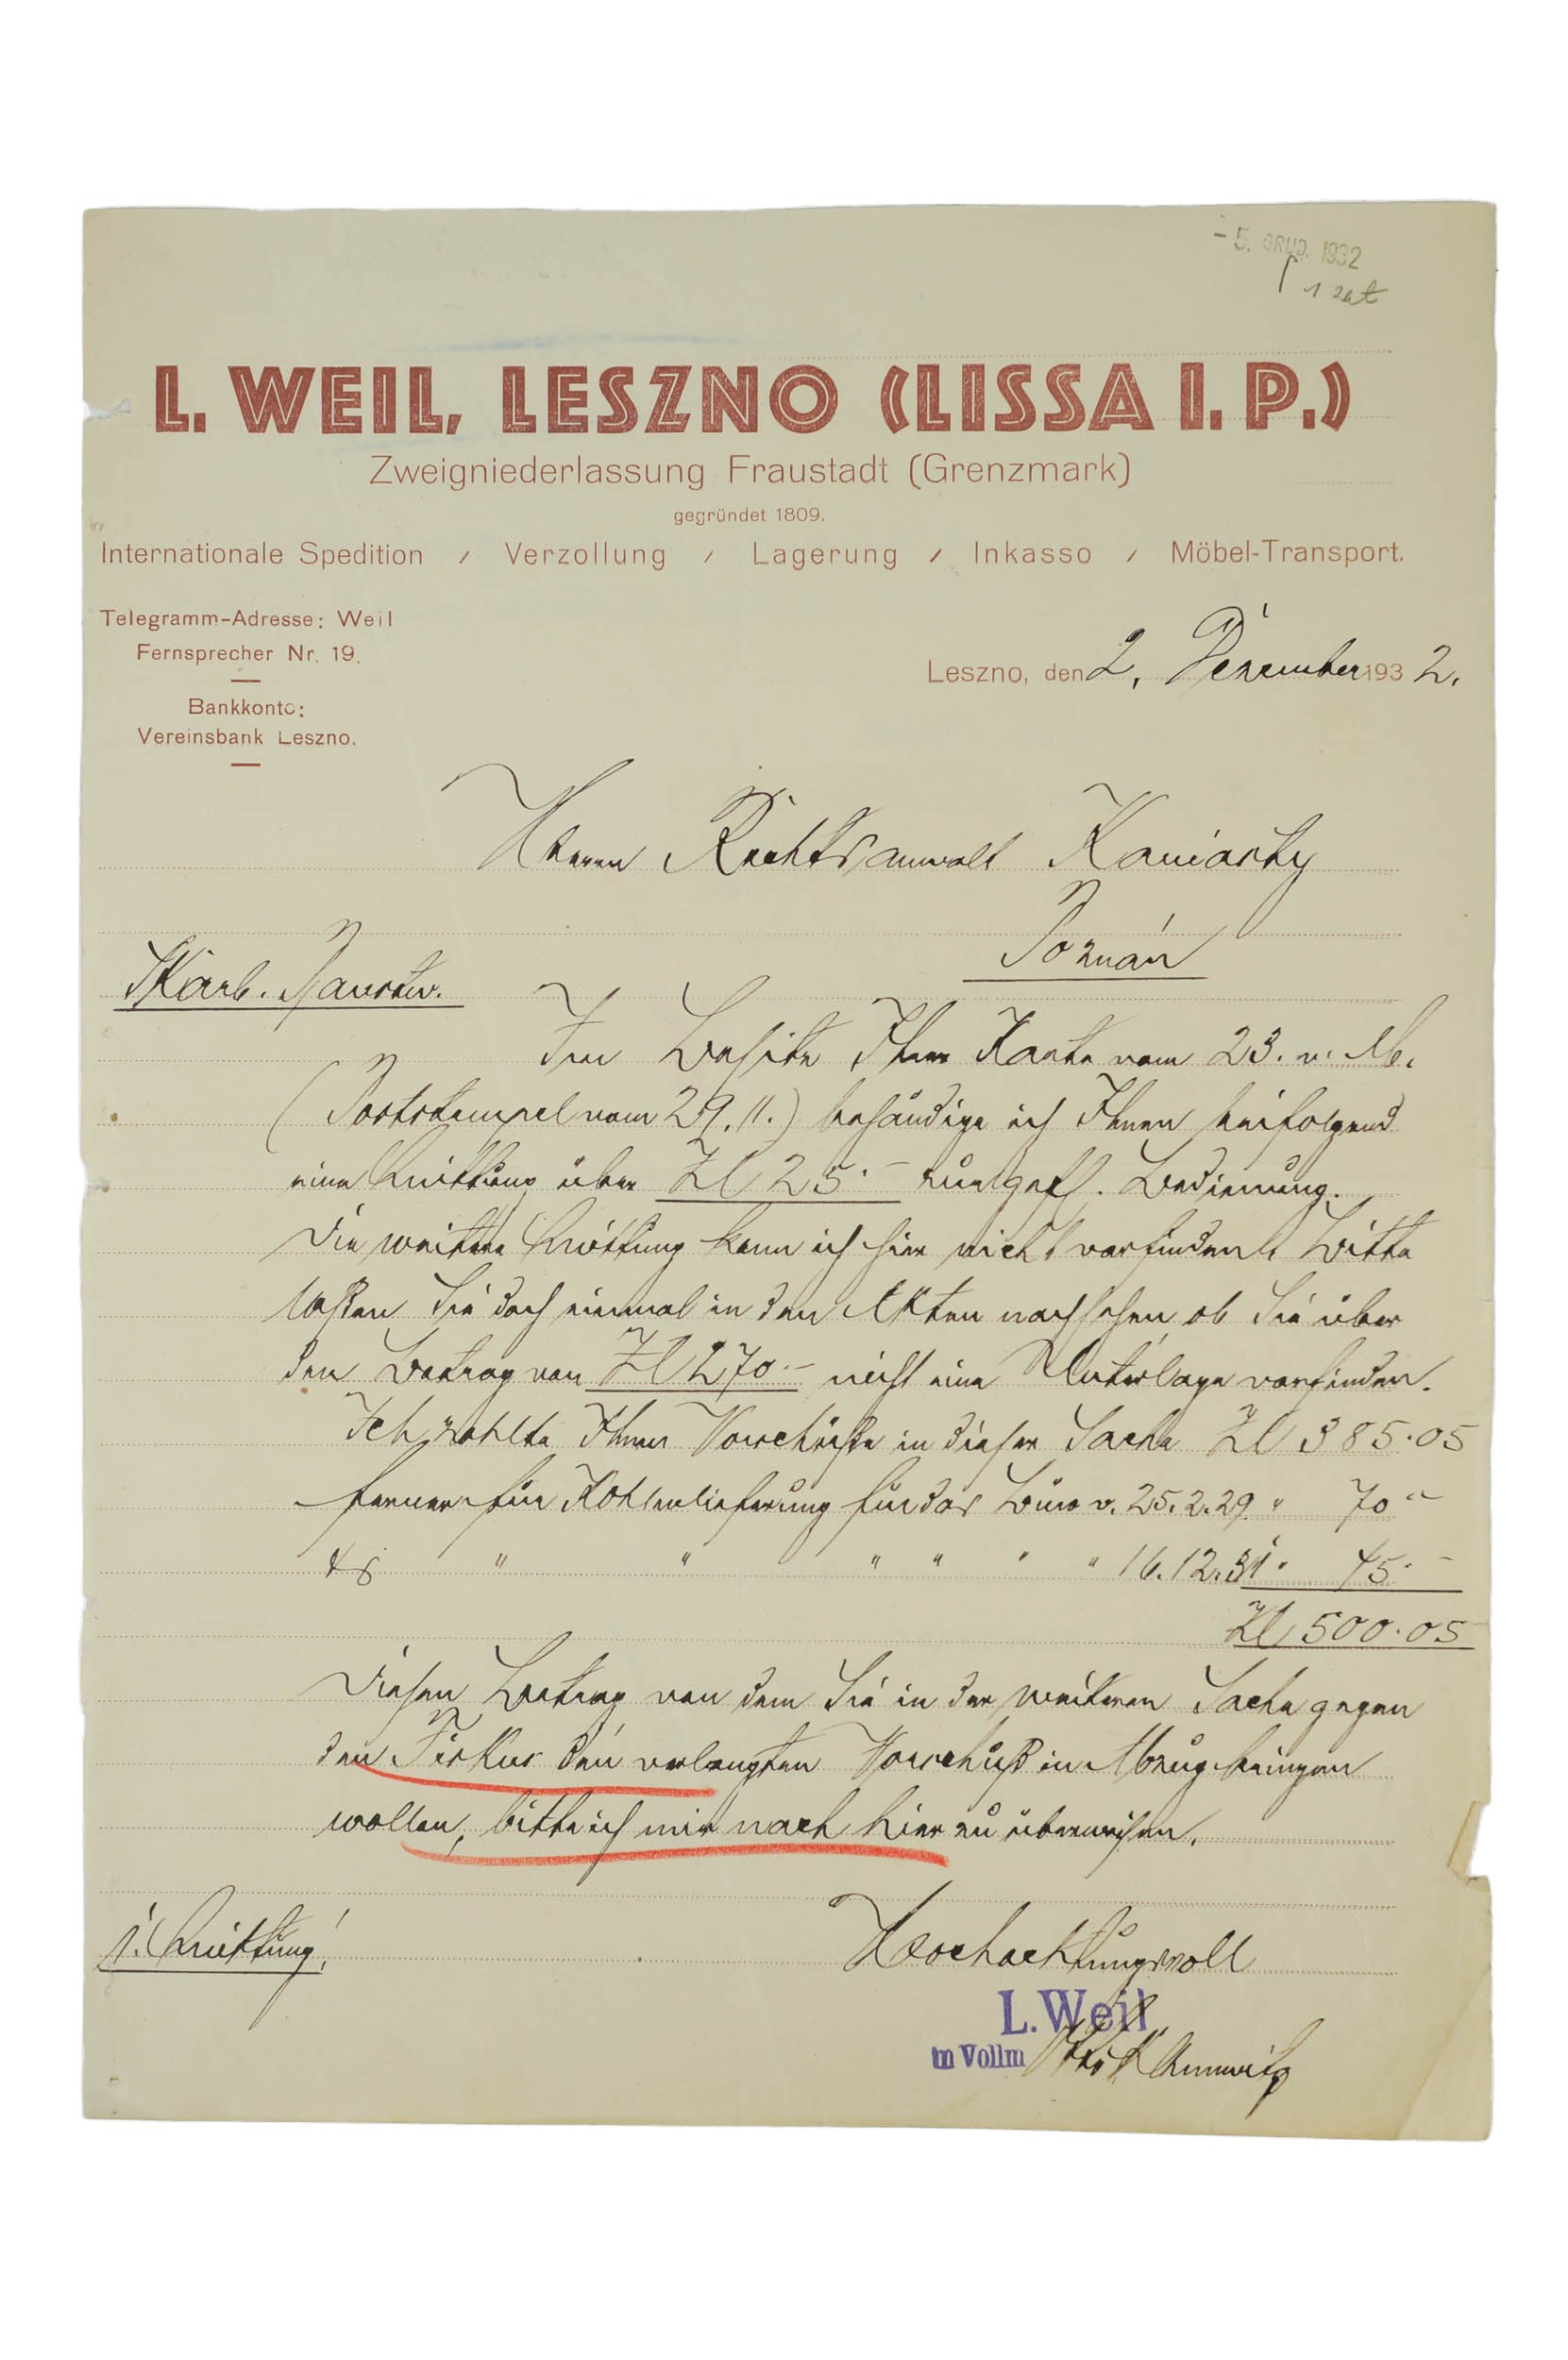 - 5. GRUD. 1932
L. WEIL, LESZNO (LISSA I. P.)
Zweigniederlassung Fraustadt (Grenzmark)
gegründet 1809.
Internationale Spedition / Verzollung / Lagerung / Inkasso / Möbel-Transport.
Telegramm-Adresse: Weil
Fernsprecher Nr. 19.
Leszno, den 2. Dezember 1932.
Bankkonto:
Vereinsbank Leszno.
Herrn Rechtsanwalt
Poznań
Skarb. Państw.
Im Besitze Ihrer Karte vom 23. v. M.
(Poststempel vom 29.11.) behändige ich Ihnen beifolgend
eine Quittung über Zl 25.- zur gefl. Bedienung.
Die weitere Quittung kann ich hier nicht vorfinden. Bitte
lassen Sie doch einmal in den Akten nachsehen, ob Sie über
den Betrag von Zl 270.- nicht eine Unterlage vorfinden.
Ich zahlte Ihnen Vorschüsse in dieser Sache Zl 385.05
ferner für Kohlenlieferung für das Büro v. 25.2.29 " 70.-
" " " " " " 16.12.31 " 45.-
Zl 500.05
Diesen Betrag von dem Sie in der weiteren Sache gegen
den Fiskus den verlangten Vorschuß in Abzug bringen
wollen, bitte ich mir nach hier zu überweisen.
1. Quittung!
Hochachtungsvoll
L. Weil
in Vollm